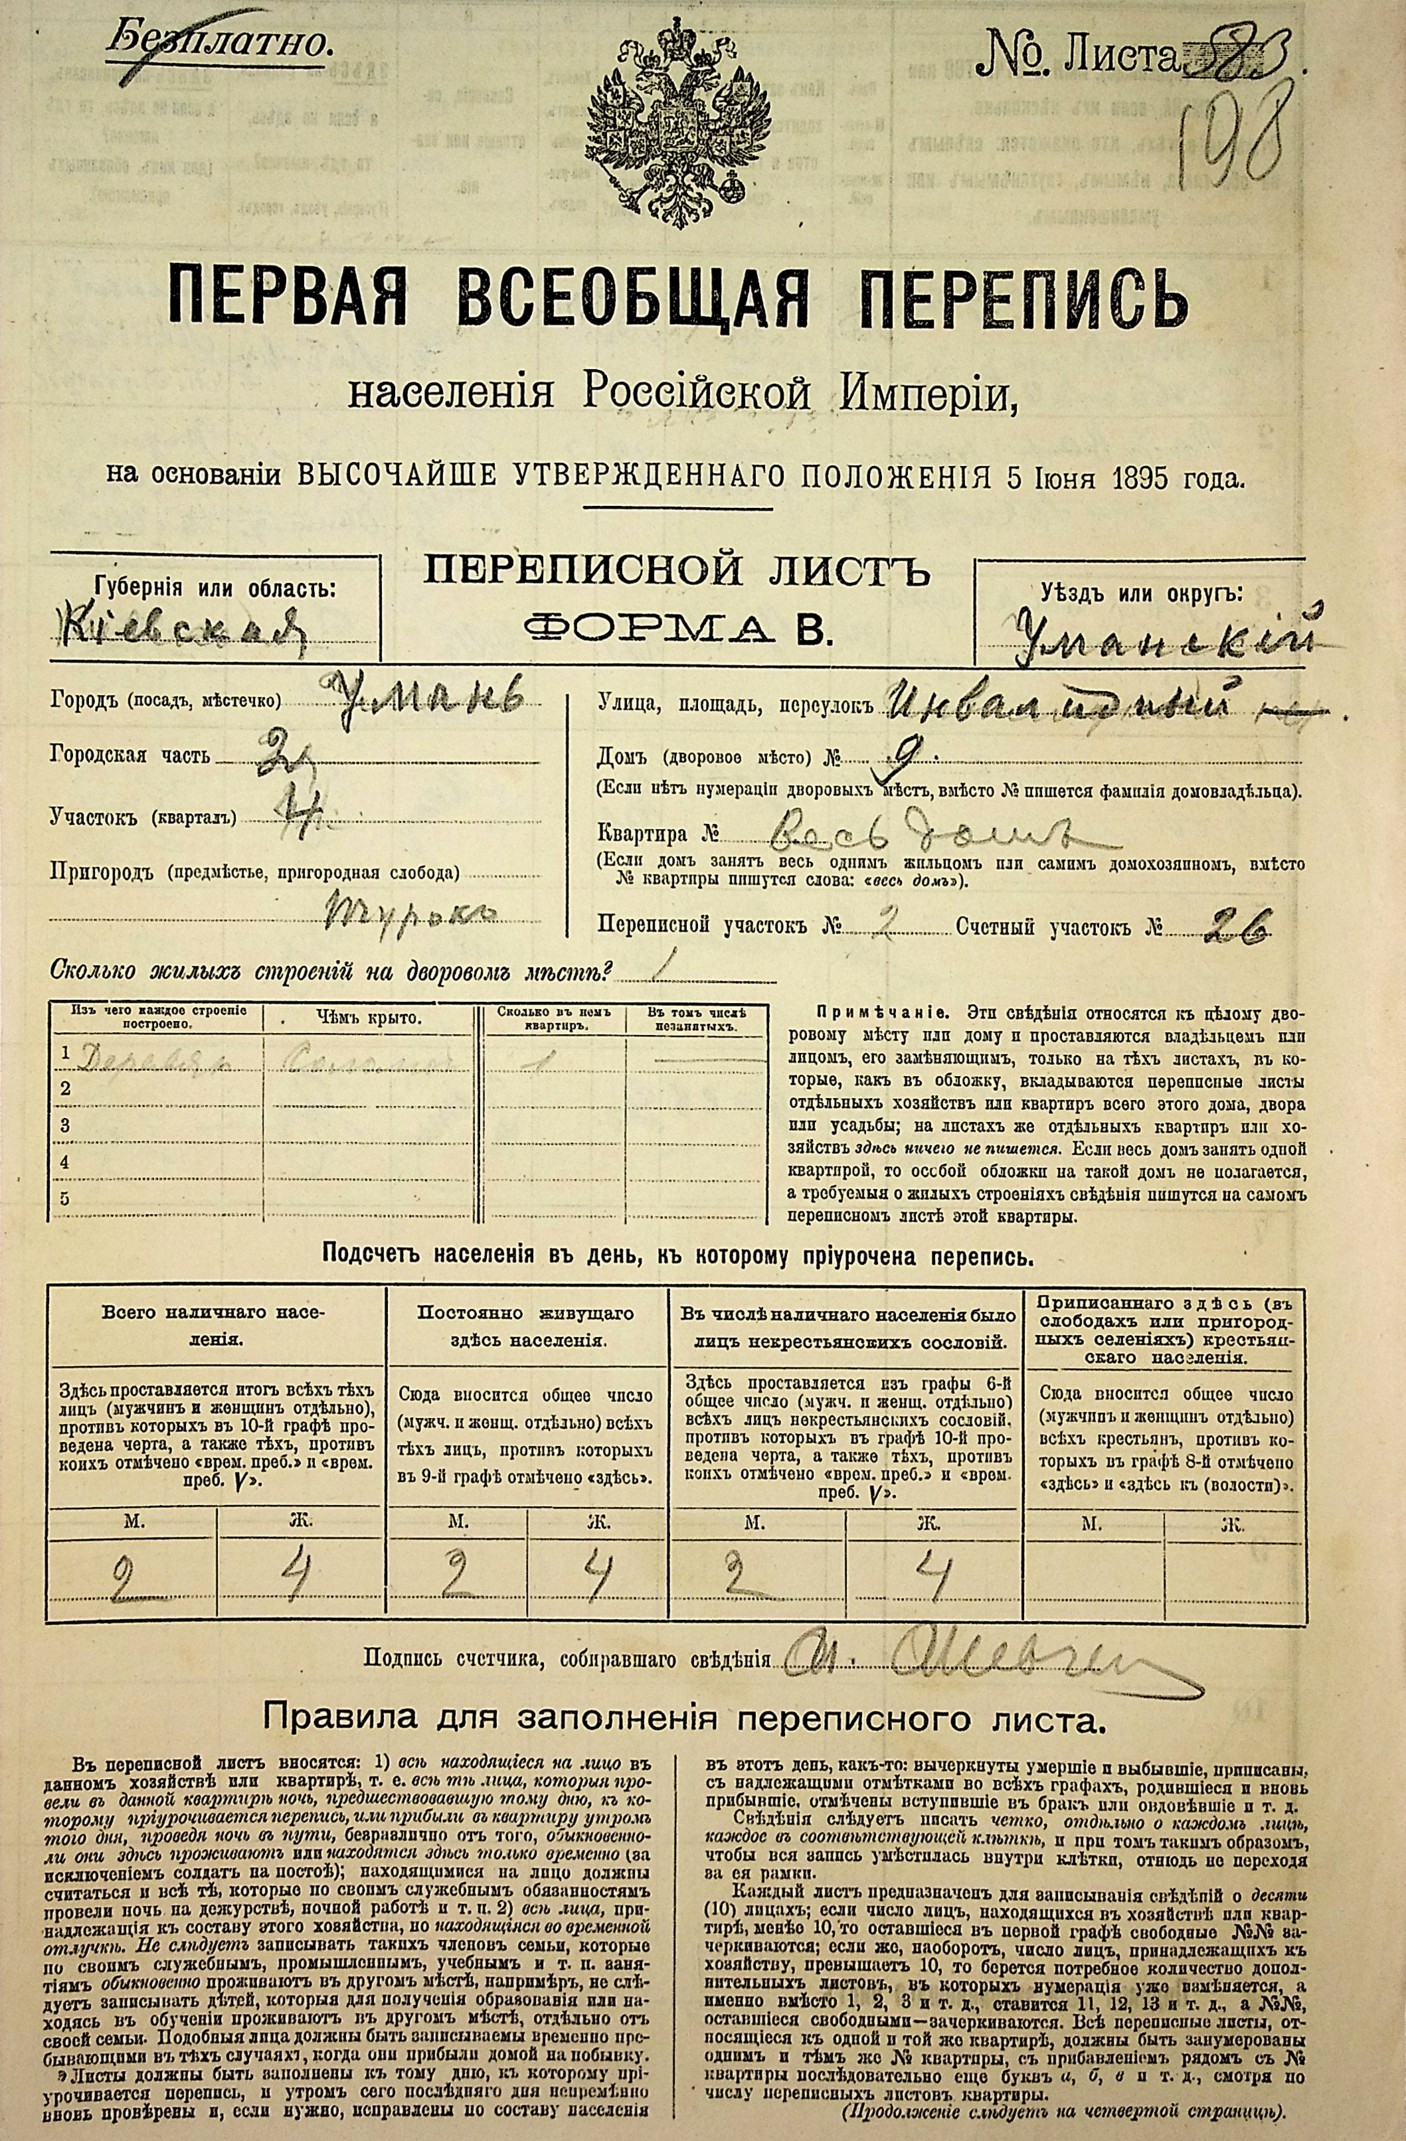 Безплатно.
№. Листа 583.
198
ПЕРВАЯ ВСЕОБЩАЯ ПЕРЕПИСЬ
населенія Россійской Имперіи,
на основаніи ВЫСОЧАЙШЕ УТВЕРЖДЕННАГО ПОЛОЖЕНІЯ 5 Іюня 1895 года.
ПЕРЕПИСНОЙ ЛИСТЪ
ФОРМА В.
Губернія или область:
Кіевская
Уѣздъ или округъ:
Уманскій
Городъ (посадъ, мѣстечко) Умань
Городская часть 2я
Участокъ (кварталъ) 4
Пригородъ (предмѣстье, пригородная слобода)
Турокъ
Улица, площадь, переулокъ Инвалидный
Домъ (дворовое мѣсто) № 9.
(Если нѣтъ нумераціи дворовыхъ мѣстъ, вмѣсто № пишется фамилія домовладѣльца).
Квартира № Весь домъ
(Если домъ занятъ весь однимъ жильцомъ или самимъ домохозяиномъ, вмѣсто
№ квартиры пишутся слова: «весь домъ»).
Переписной участокъ № 2 Счетный участокъ № 26
Сколько жилыхъ строеній на дворовомъ мѣстѣ? 1
Изъ чего каждое строеніе построено.
Чѣмъ крыто.
Сколько въ немъ квартиръ.
Въ томъ числѣ незанятыхъ.
1 Деревян Солом 1 —
2
3
4
5
Примѣчаніе. Эти свѣдѣнія относятся къ цѣлому дво-
ровому мѣсту или дому и проставляются владѣльцемъ или
лицомъ, его замѣняющимъ, только на тѣхъ листахъ, въ ко-
торые, какъ въ обложку, вкладываются переписные листы
отдѣльныхъ хозяйствъ или квартиръ всего этого дома, двора
или усадьбы; на листахъ же отдѣльныхъ квартиръ или хо-
зяйствъ здѣсь ничего не пишется. Если весь домъ занятъ одной
квартирой, то особой обложки на такой домъ не полагается,
а требуемыя о жилыхъ строеніяхъ свѣдѣнія пишутся на самомъ
переписномъ листѣ этой квартиры.
Подсчетъ населенія въ день, къ которому пріурочена перепись.
Всего наличнаго насе-
ленія.
Здѣсь проставляется итогъ всѣхъ тѣхъ
лицъ (мужчинъ и женщинъ отдѣльно),
противъ которыхъ въ 10-й графѣ про-
ведена черта, а также тѣхъ, противъ
коихъ отмѣчено «врем. преб.» и «врем.
преб. V».
М. Ж.
2 4
Постоянно живущаго
здѣсь населенія.
Сюда вносится общее число
(мужч. и женщ. отдѣльно) всѣхъ
тѣхъ лицъ, противъ которыхъ
въ 9-й графѣ отмѣчено «здѣсь».
М. Ж.
2 4
Въ числѣ наличнаго населенія было
лицъ некрестьянскихъ сословій.
Здѣсь проставляется изъ графы 6-й
общее число (мужч. и женщ. отдѣльно)
всѣхъ лицъ некрестьянскихъ сословій,
противъ которыхъ въ графѣ 10-й про-
ведена черта, а также тѣхъ, противъ
коихъ отмѣчено «врем. преб.» и «врем.
преб. V».
М. Ж.
2 4
Приписаннаго здѣсь (въ
слободахъ или пригород-
ныхъ селеніяхъ) крестьян-
скаго населенія.
Сюда вносится общее число
(мужчинъ и женщинъ отдѣльно)
всѣхъ крестьян, противъ ко-
торыхъ въ графѣ 8-й отмѣчено
«здѣсь» и «здѣсь къ (волости)».
М. Ж.
Подпись счетчика, собиравшаго свѣдѣнія
Правила для заполненія переписного листа.
Въ переписной листъ вносятся: 1) всѣ находящіеся на лицо въ
данномъ хозяйствѣ или квартирѣ, т. е. всѣ тѣ лица, которыя про-
вели въ данной квартирѣ ночь, предшествовавшую тому дню, къ ко-
торому пріурочивается перепись, или прибыли въ квартиру утромъ
того дня, проведя ночь въ пути, безразлично отъ того, обыкновенно-
ли они здѣсь проживаютъ или находятся здѣсь только временно (за
исключеніемъ солдатъ на постоѣ); находящимися на лицо должны
считаться и всѣ тѣ, которые по своимъ служебнымъ обязанностямъ
провели ночь на дежурствѣ, ночной работѣ и т. п. 2) всѣ лица, при-
надлежащія къ составу этого хозяйства, но находящіяся во временной
отлучкѣ. Не слѣдуетъ записывать такихъ членовъ семьи, которые
по своимъ служебнымъ, промышленнымъ, учебнымъ и т. п. заня-
тіямъ обыкновенно проживаютъ въ другомъ мѣстѣ, напримѣръ, не слѣ-
дуетъ записывать дѣтей, которыя для полученія образованія или на-
ходясь въ обученіи проживаютъ въ другомъ мѣстѣ, отдѣльно отъ
своей семьи. Подобныя лица должны быть записываемы временно пре-
бывающими въ тѣхъ случаяхъ, когда они прибыли домой на побывку.
Листы должны быть заполнены къ тому дню, къ которому прі-
урочивается перепись, и утромъ сего послѣдняго дня непремѣнно
вновь провѣрены и, если нужно, исправлены по составу населенія
въ этотъ день, какъ-то: вычеркнуты умершіе и выбывшіе, приписаны,
съ надлежащими отмѣтками во всѣхъ графахъ, родившіеся и вновь
прибывшіе, отмѣчены вступившіе въ бракъ или овдовѣвшіе и т. д.
Свѣдѣнія слѣдуетъ писать четко, отдѣльно о каждомъ лицѣ,
каждое въ соотвѣтствующей клѣткѣ, и при томъ такимъ образомъ,
чтобы вся запись умѣстилась внутри клѣтки, отнюдь не переходя
за ея рамки.
Каждый листъ предназначенъ для записыванія свѣдѣній о десяти
(10) лицахъ; если число лицъ, находящихся въ хозяйствѣ или квар-
тирѣ, менѣе 10, то оставшіеся въ первой графѣ свободные №№ за-
черкиваются; если же, наоборотъ, число лицъ, принадлежащихъ къ
хозяйству, превышаетъ 10, то берется потребное количество допол-
нительныхъ листовъ, въ которыхъ нумерація уже измѣняется, а
именно вмѣсто 1, 2, 3 и т. д., ставится 11, 12, 13 и т. д., а №№,
оставшіеся свободными—зачеркиваются. Всѣ переписные листы, от-
носящіеся къ одной и той же квартирѣ, должны быть занумерованы
однимъ и тѣмъ же № квартиры, съ прибавленіемъ рядомъ съ №
квартиры послѣдовательно еще буквъ а, б, в и т. д., смотря по
числу переписныхъ листовъ квартиры.
(Продолженіе слѣдуетъ на четвертой страницѣ).